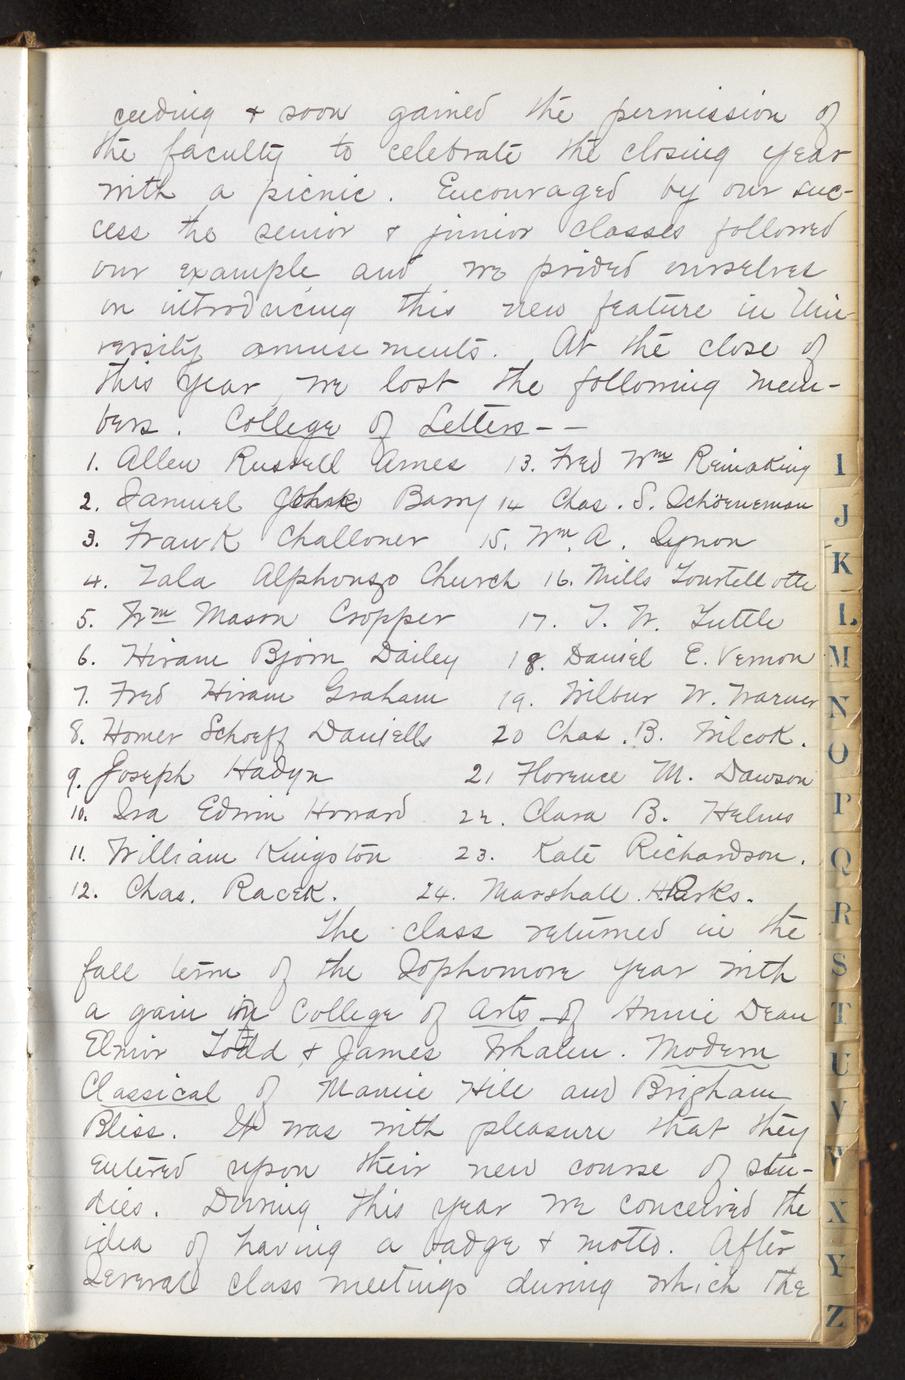 ceeding & soon gained the permission of
the faculty to celebrate the closing year
with a picnic. Encouraged by our suc-
cess the senior & junior classes followed
our example, and we prided ourselves
on introducing this new feature in Uni-
versity amusements. At the close of
this year, we lost the following mem-
bers. College of Letters--
1. Allen Russell Ames 13. Fred Wm Reinaking
2. Samuel Barry 14 Chas. S. Schöeneman
3. Frank Challoner 15. Wm. A. Synon
4. Zala Alphonzo Church 16. Mills Tourtellotte
5. Wm Mason Cropper 17. T. W. Tuttle
6. Hiram Bjorn Dailey 18. Daniel E. Vernon
7. Fred Hiram Graham 19. Wilbur W. Warner
8. Homer Schoeff Daniells 20 Chas. B. Wilcok.
9. Joseph Hadyn 21 Florence M. Dawson
10. Ira Edwin Howard 22. Clara B. Helms
11. William Kingston 23. Kate Richardson.
12. Chas. Racek. 24. Marshall H. Parks.
The class returned in the
fall term of the Sophomore year with
a gain in College of Arts of Annie Dean
Elmor Todd & James Whalen. Modern
Classical of Mamie Hill and Brigham
Bliss. It was with pleasure that they
entered upon their new course of stu-
dies. During this year we conceived the
idea of having a badge & motto. After
several class meetings during which the
I
J
K
L
M
N
O
P
Q
R
S
T
U
V
W
X
Y
Z